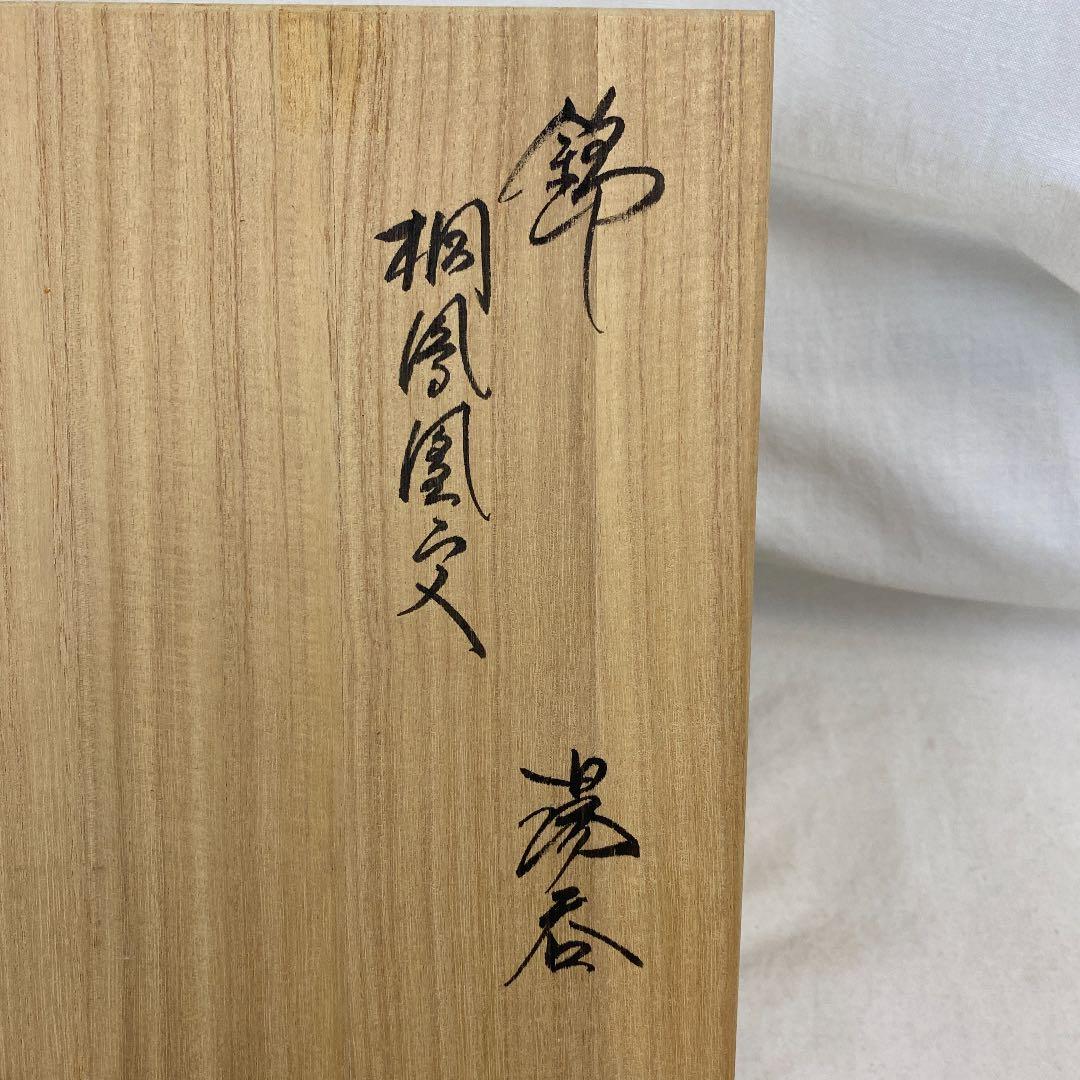 錦
桐鳳凰文
湯呑